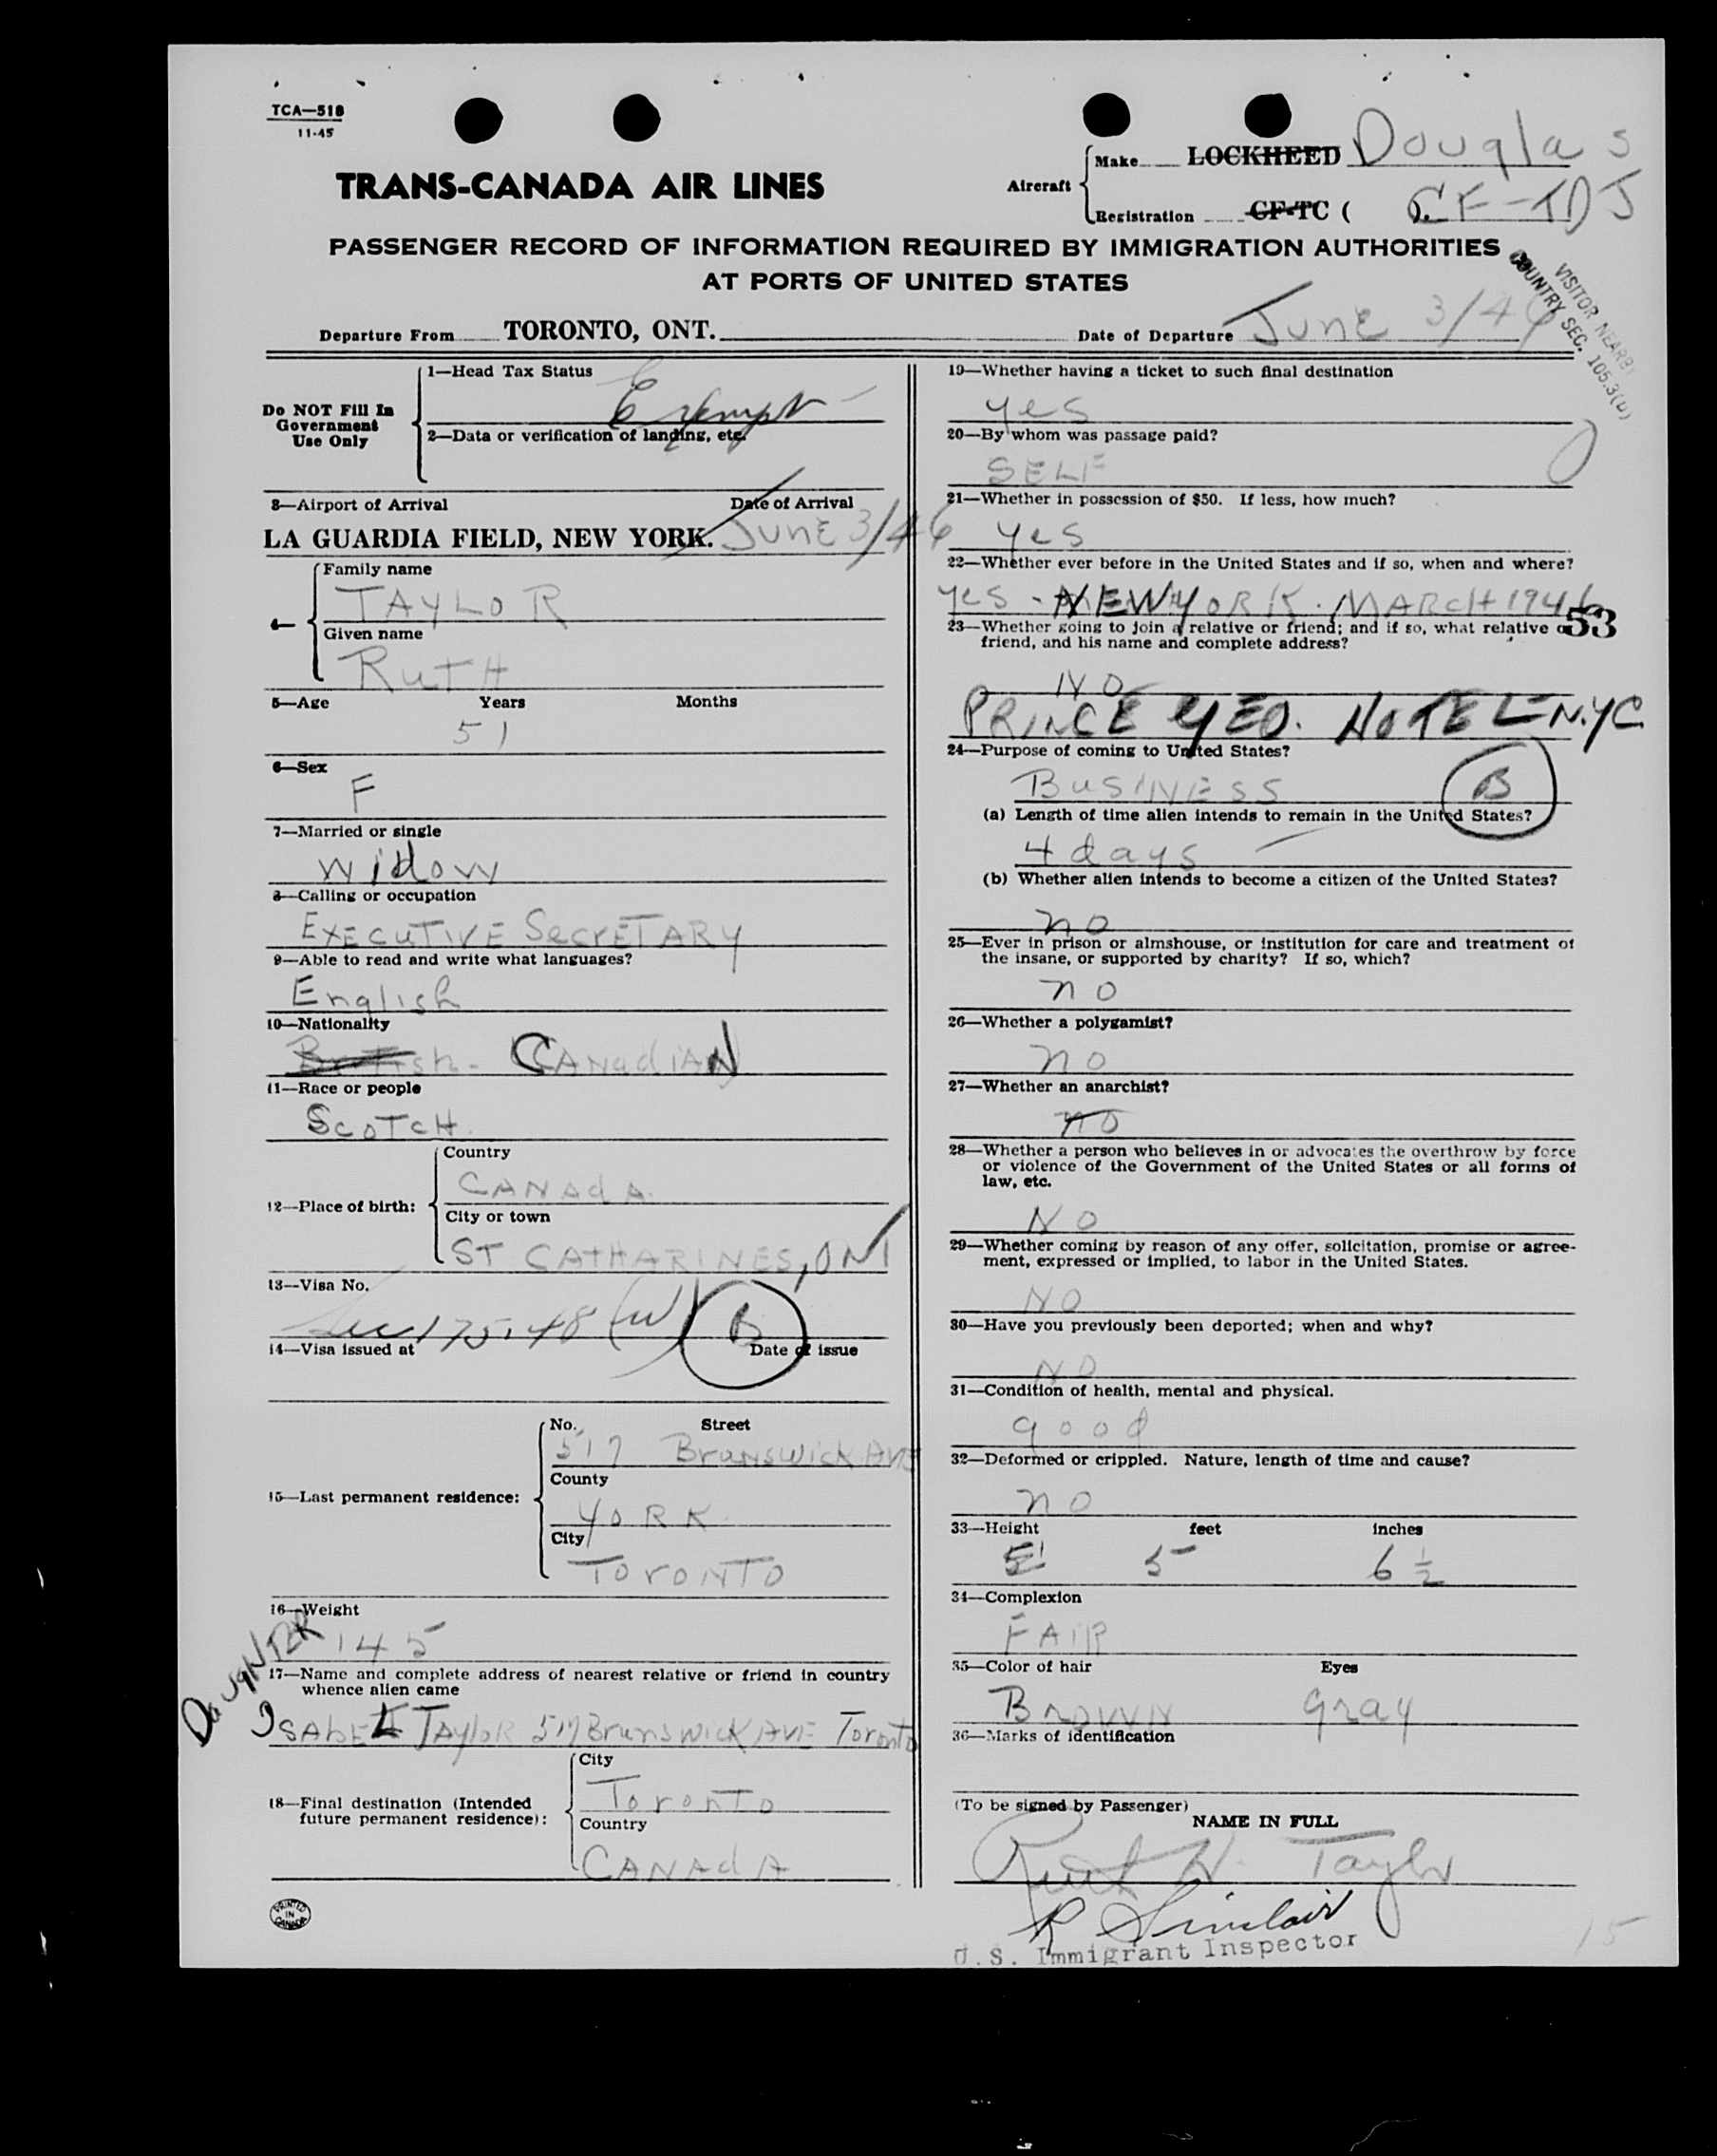 TCA—518
11-45
TRANS-CANADA AIR LINES
Aircraft
Make LOCKHEED Douglas
Registration CF-TC ( ). CF-TDJ
PASSENGER RECORD OF INFORMATION REQUIRED BY IMMIGRATION AUTHORITIES
AT PORTS OF UNITED STATES
VISITOR NEARBY
COUNTRY SEC. 105.3(b)
Departure From TORONTO, ONT.
Date of Departure June 3/46
Do NOT Fill In
Government
Use Only
1—Head Tax Status
Exempt
2—Data or verification of landing, etc.
3—Airport of Arrival Date of Arrival
LA GUARDIA FIELD, NEW YORK. June 3/46
4—
Family name
TAYLOR
Given name
RuTH
5—Age Years Months
51
6—Sex
F
7—Married or single
widow
8—Calling or occupation
EXECUTIVE SecrETARY
9—Able to read and write what languages?
English
10—Nationality
British - CANadiAN
11—Race or people
ScoTcH.
12—Place of birth:
Country
CANAdA.
City or town
ST CATHARINES, ONT
13—Visa No.
Sec 175.48 (w) B
14—Visa issued at Date of issue
15—Last permanent residence:
No. Street
517 Brunswick Ave
County
YORK
City
ToroNTO
16—Weight
145
DaugHTER
17—Name and complete address of nearest relative or friend in country
whence alien came
ISAbEL TAyloR 517 Brunswick AVE Toronto
18—Final destination (Intended
future permanent residence):
City
Toronto
Country
CANAdA
PRINTED
IN
CANADA
19—Whether having a ticket to such final destination
yes
20—By whom was passage paid?
SELF
21—Whether in possession of $50. If less, how much?
yes
22—Whether ever before in the United States and if so, when and where?
yes - NEW YORK. MARCH 1946
53
23—Whether going to join a relative or friend; and if so, what relative or
friend, and his name and complete address?
NO
PRINCE GEO. HOTEL N.Y.C.
24—Purpose of coming to United States?
BusINESS B
(a) Length of time alien intends to remain in the United States?
4 days
(b) Whether alien intends to become a citizen of the United States?
no
25—Ever in prison or almshouse, or institution for care and treatment of
the insane, or supported by charity? If so, which?
no
26—Whether a polygamist?
no
27—Whether an anarchist?
no
28—Whether a person who believes in or advocates the overthrow by force
or violence of the Government of the United States or all forms of
law, etc.
NO
29—Whether coming by reason of any offer, solicitation, promise or agree-
ment, expressed or implied, to labor in the United States.
NO
30—Have you previously been deported; when and why?
NO
31—Condition of health, mental and physical.
good
32—Deformed or crippled. Nature, length of time and cause?
no
33—Height feet inches
5' 5 6 1/2
34—Complexion
FAIR
35—Color of hair Eyes
BROWN Gray
36—Marks of identification
(To be signed by Passenger)
NAME IN FULL
Ruth H. Taylor
R Sinclair
U.S. Immigrant Inspector
15